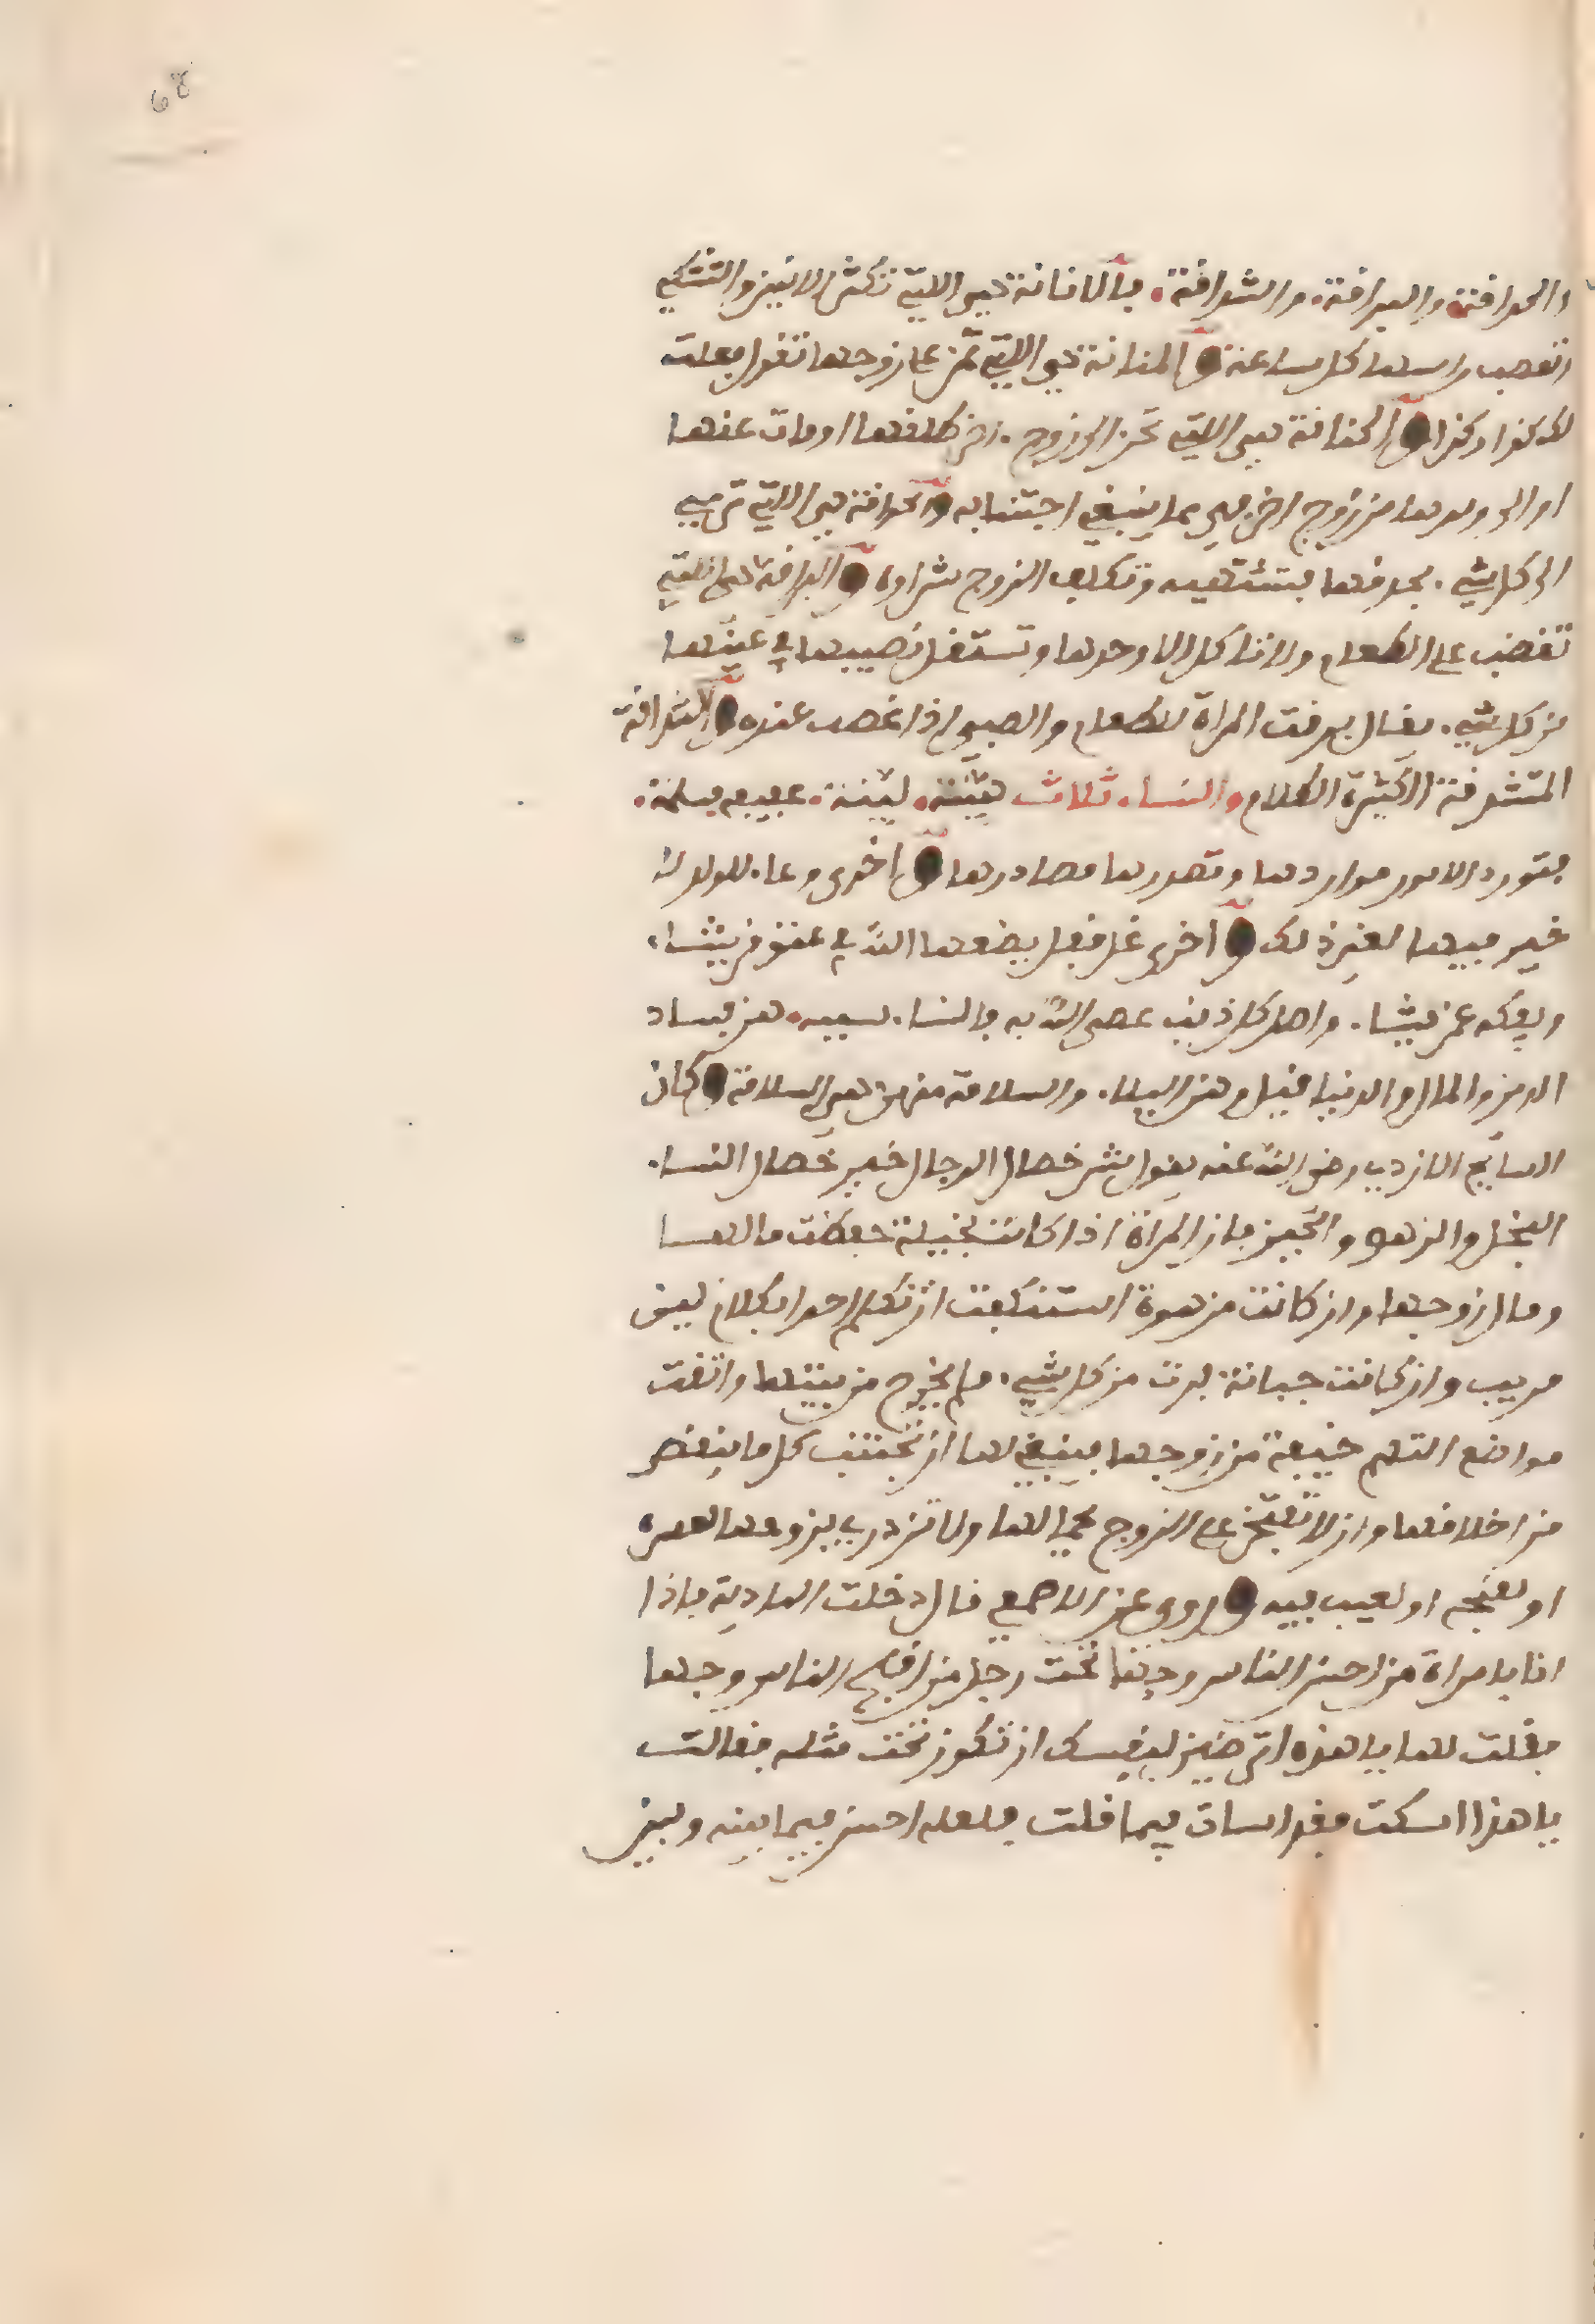 68
والحداقة والبراقة والشداقة فالانانة هي اللتي تكثر الانين والتشكي
وتعصب راسها كل ساعة والمنانة هي اللتي تمن على زوجها تقول فعلت
لك كذا وكذا والحنانة هي اللتي تحن الى زوج اخر طلقها او مات عنها
او الى ولدها من زوج اخر فهي مما ينبغي اجتنابه والحداقة هي اللتي ترمي
الى كل شيء بحدقتها فتشتهيه وتكلف الزوج شراءه والبراقة هي اللتي
تغضب على الطعام ولا تاكل الا وحدها وتستقل نصيبها في عينها
من كل شيء يقال برقت المراة للطعام والصبي اذا غضب عنده والشداقة
المتشدقة الكثيرة الكلام والنساء ثلاث هينة لينة عفيفة مسلمة
فتورد الامور مواردها وتصدرها مصادرها واخرى وعاء للولد لا
خير فيها لغير ذلك واخرى غل قمل يضعها الله في عنق من يشاء
ويفكه عمن يشاء واصل كل ذنب عصي الله به فالنساء سببه هن فساد
الدين والمال والدنيا قيل وهن البلاء والسلامة منهن هي السلامة وكان
السايح الازدي رضي الله عنه يقول شر خصال الرجال خير خصال النساء
البخل والزهو والجبن فان المراة اذا كانت بخيلة حفظت مالها
ومال زوجها وان كانت مزهوة استنكفت ان تكلم احدا بكلام لين
مريب وان كانت جبانة فرقت من كل شيء فلم تخرج من بيتها واتقت
مواضع التهم خيفة من زوجها فينبغي لها ان تجتنب كل ما ينقص
من اخلاقها وان لا تفتخر على الزوج بجمالها ولا تزدري بزوجها لفقره
او لقبح او لعيب فيه وروي عن الاصمعي قال دخلت البادية فاذا
انا بامراة من احسن الناس وجها تحت رجل من اقبح الناس وجها
فقلت لها يا هذه اترضين لنفسك ان تكون تحت مثله فقالت
يا هذا اسكت فقد اسات فيما قلت فلعله احسن فيما بينه وبين